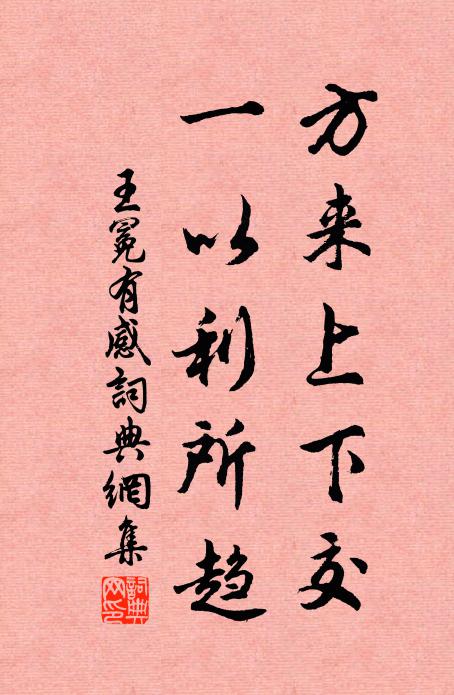 方来上下交
一以利所趋
王冕有感詞典網集
詞典網印